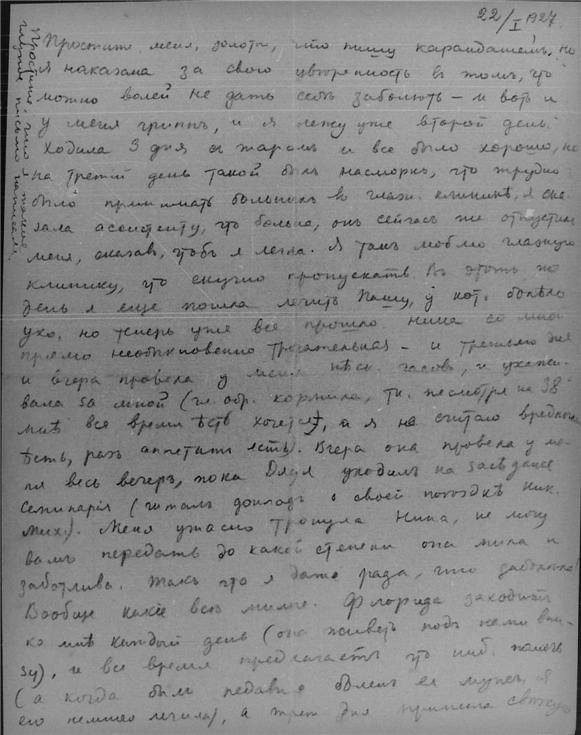 22/I 1927.
Простите меня, золотко, что пишу карандашемъ, но
я наказана за свою увѣренность въ томъ, что
можно волей не дать себѣ заболѣть – и вотъ и
у меня гриппъ, и я лежу уже второй день.
Ходила 3 дня съ жаромъ и все было хорошо, но
на третій день такой былъ насморкъ, что трудно
было принимать больныхъ въ глазн. клиникѣ, я ска-
зала ассистенту, что больна, онъ сейчасъ же отпустилъ
меня, сказавъ, чтобъ я легла. Я такъ люблю глазную
клинику, что скучно пропускать. Въ этотъ же
день я еще пошла лечить Пашу, у кот. болѣло
ухо, но теперь уже все прошло. Нина со мной
прямо необыкновенно трогательная – и третьяго дня
и вчера провела у меня нѣск. часовъ, и ухажи-
вала за мной (гл. обр. кормила, тк. несмотря на 38°
мнѣ все время ѣсть хочется, а я не считаю вреднымъ
ѣсть, разъ аппетитъ есть). Вчера она провела у ме-
ня весь вечеръ, пока Дядя уходилъ на засѣданіе
Семинарія (читалъ докладъ о своей поѣздкѣ Ник.
Мих.). Меня ужасно тронула Нина, не могу
вамъ передать до какой степени она мила и
заботлива. Такъ что я даже рада, что заболѣла!
Вообще какіе всѣ милые. Флорида заходитъ
ко мнѣ каждый день (она живетъ подъ нами вни-
зу), и все время предлагаетъ что ниб. помочь
(а когда былъ недавно боленъ ее мужъ, я
его немного лечила), а трет. дня принесла свѣжую
Простите, что я такое
глупое письмо написала.